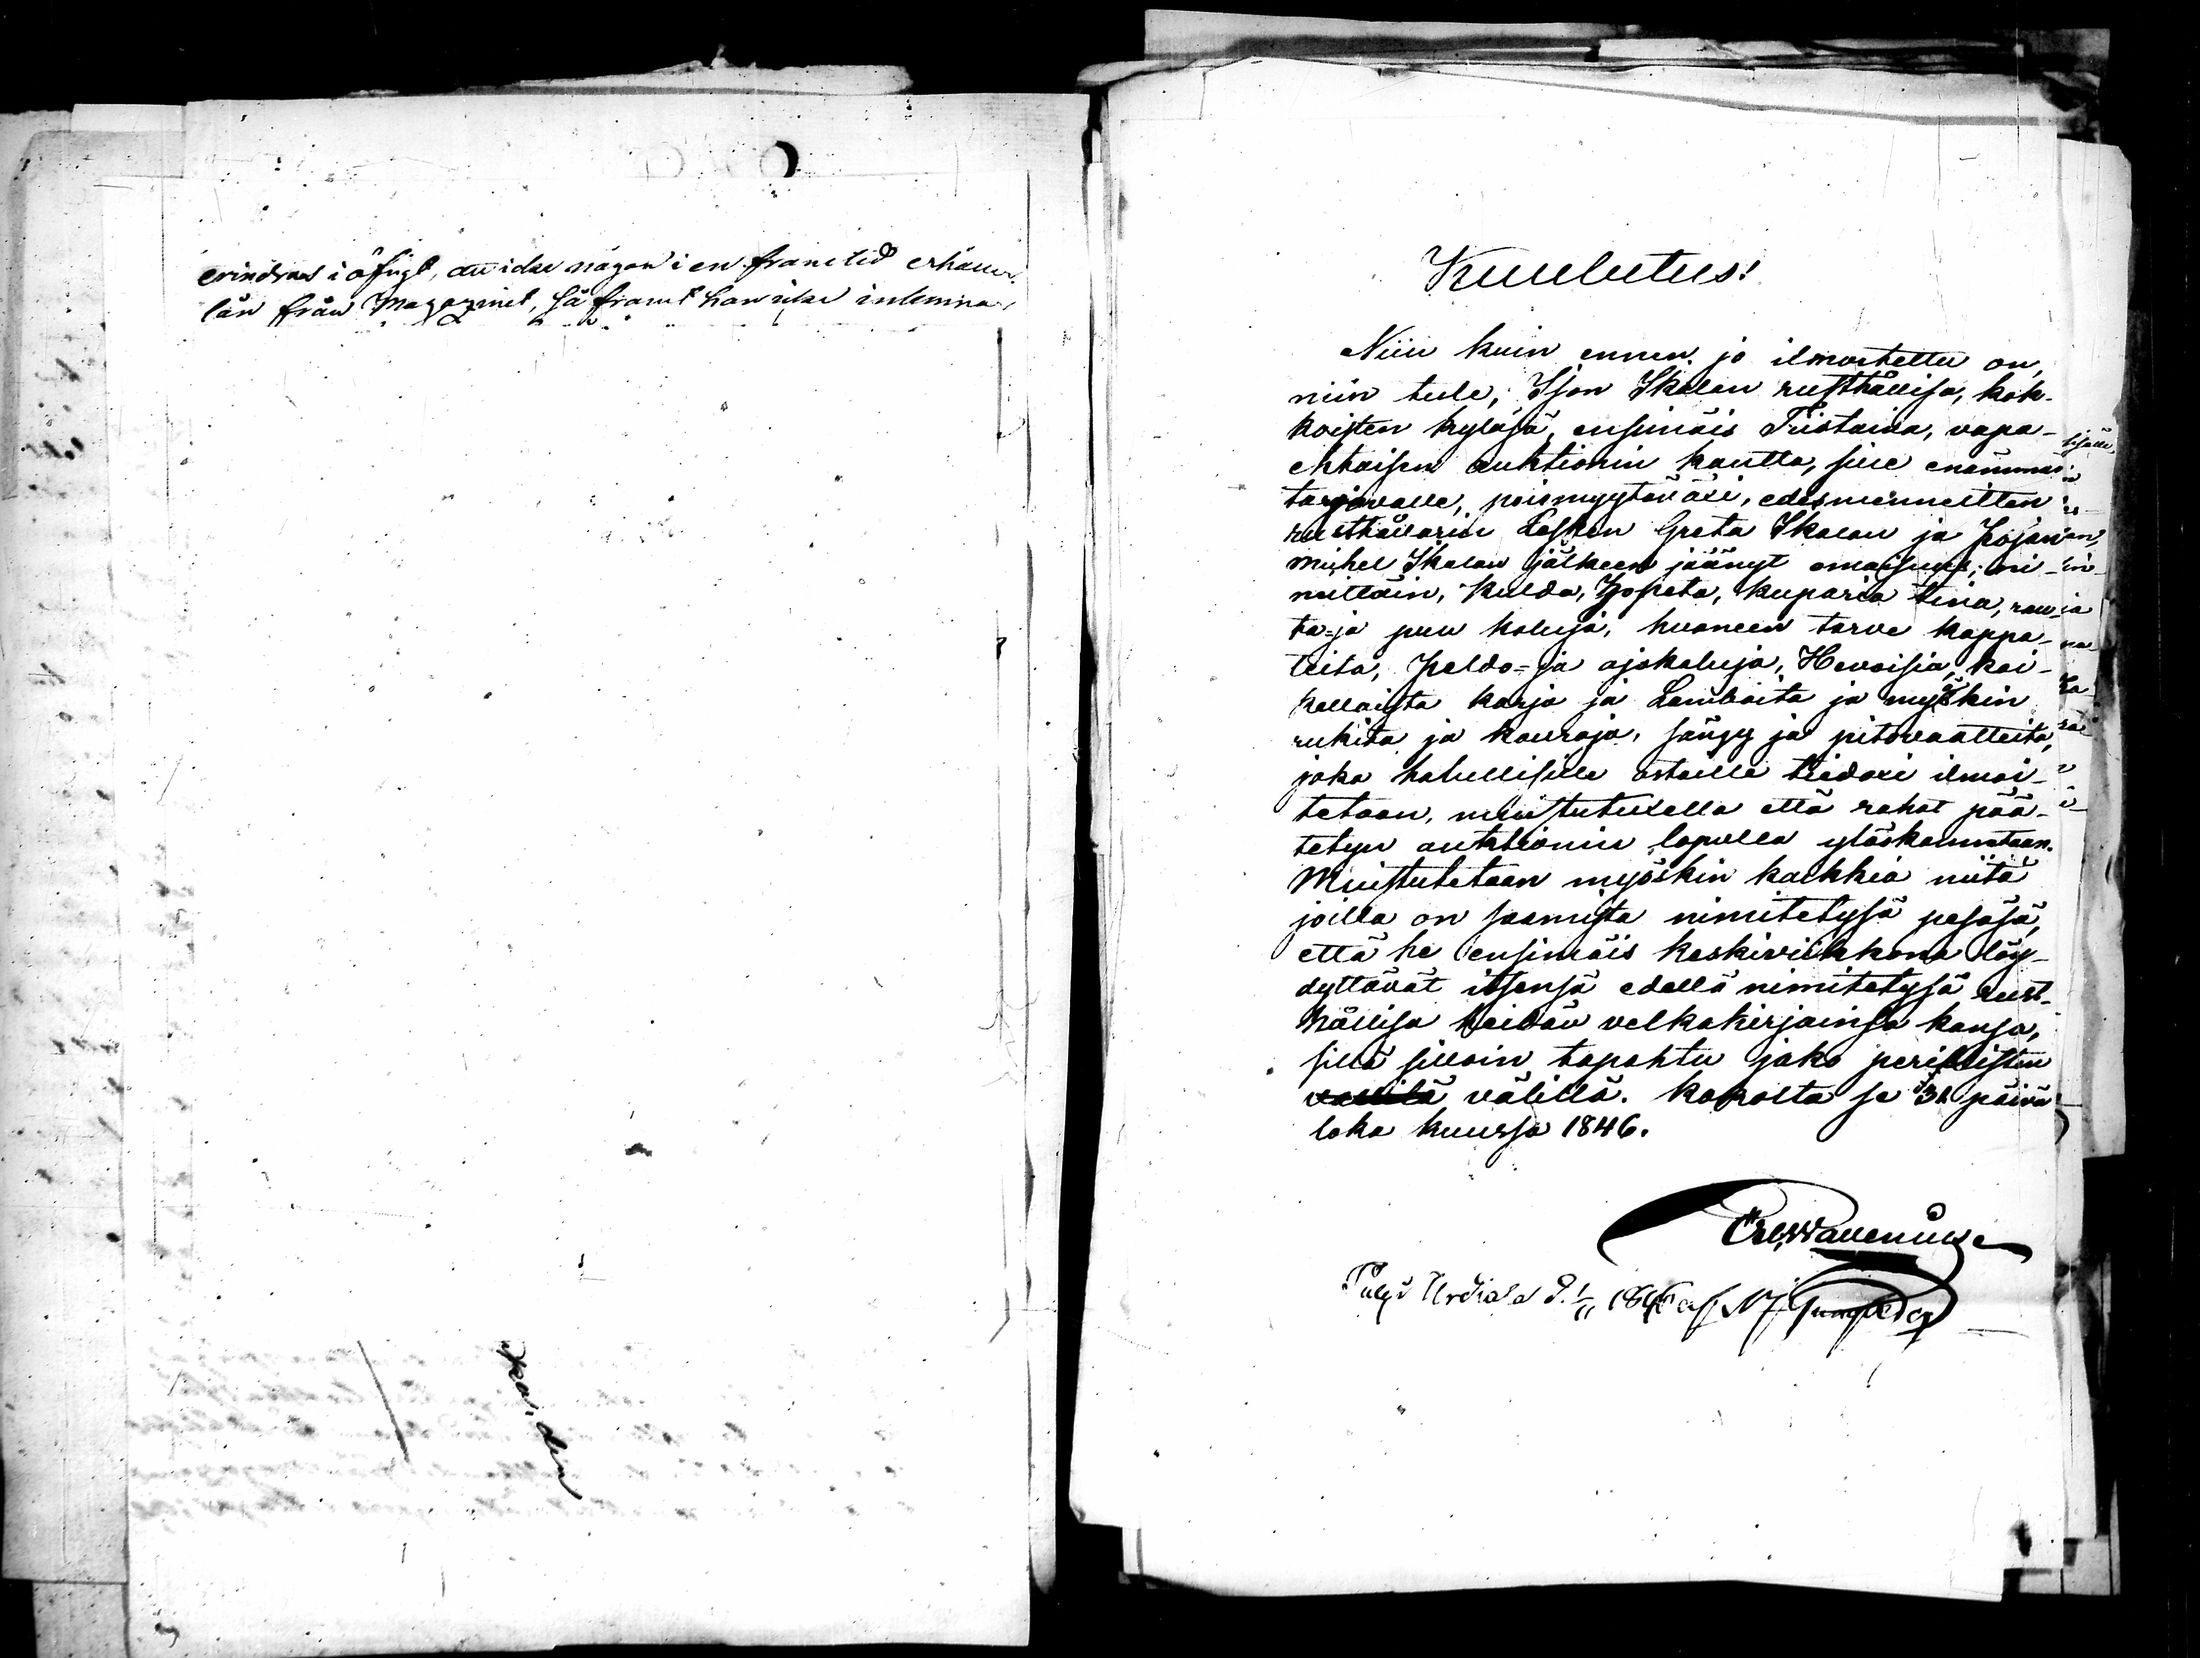 erindras i öfrigt, att icke någon i en framtid erhåller
lån från Magazinet, så framt han icke inlemna
Kuulutus!
Niin kuin ennen jo ilmoitettu on,
niin tule, Ison Skalan rusthållisa, kok-
koisten kyläsä, ensimäis Tiistaina, vapa-
ehtoisen auktionin kautta, sille enämmäs
tarjovalle, poismyytäväxi, edesmenneitten
rusthållarin Lesken Greta Skalan ja Pojan
Mihel Skalan jälkeen jäänyt omaisuus; ni-
mittäin, Kulda, Hopeta, Kuparia tina, rau-
ta- ja puu kaluja, huoneen tarve kappa-
leita, Peldo- ja ajokaluja, Hevoisia, kai-
kellaista karja ja Lamboita ja myöskin
rukita ja kauroja, sängy ja pitovaatteita,
joka halullisille ostaille tiedoxi ilmoi-
tetaan, muistutuxella että rahat pää-
tetyn auktionin lopulla ylöskannetaan.
Muistutetaan myöskin kaikkia niitä
joilla on saamista nimitetysä pesäsä,
että he ensimäis keskiviikkona löy-
dyttävät itsensä edellä nimitetysä rust-
hållisa heidän velkakirjainsa kansa,
sillä silloin tapahtu jako perillisten
välillä. Kokolta se 31 päivä
loka kuussa 1846.
Uplyst Urdiala d. 1/11 1846 af